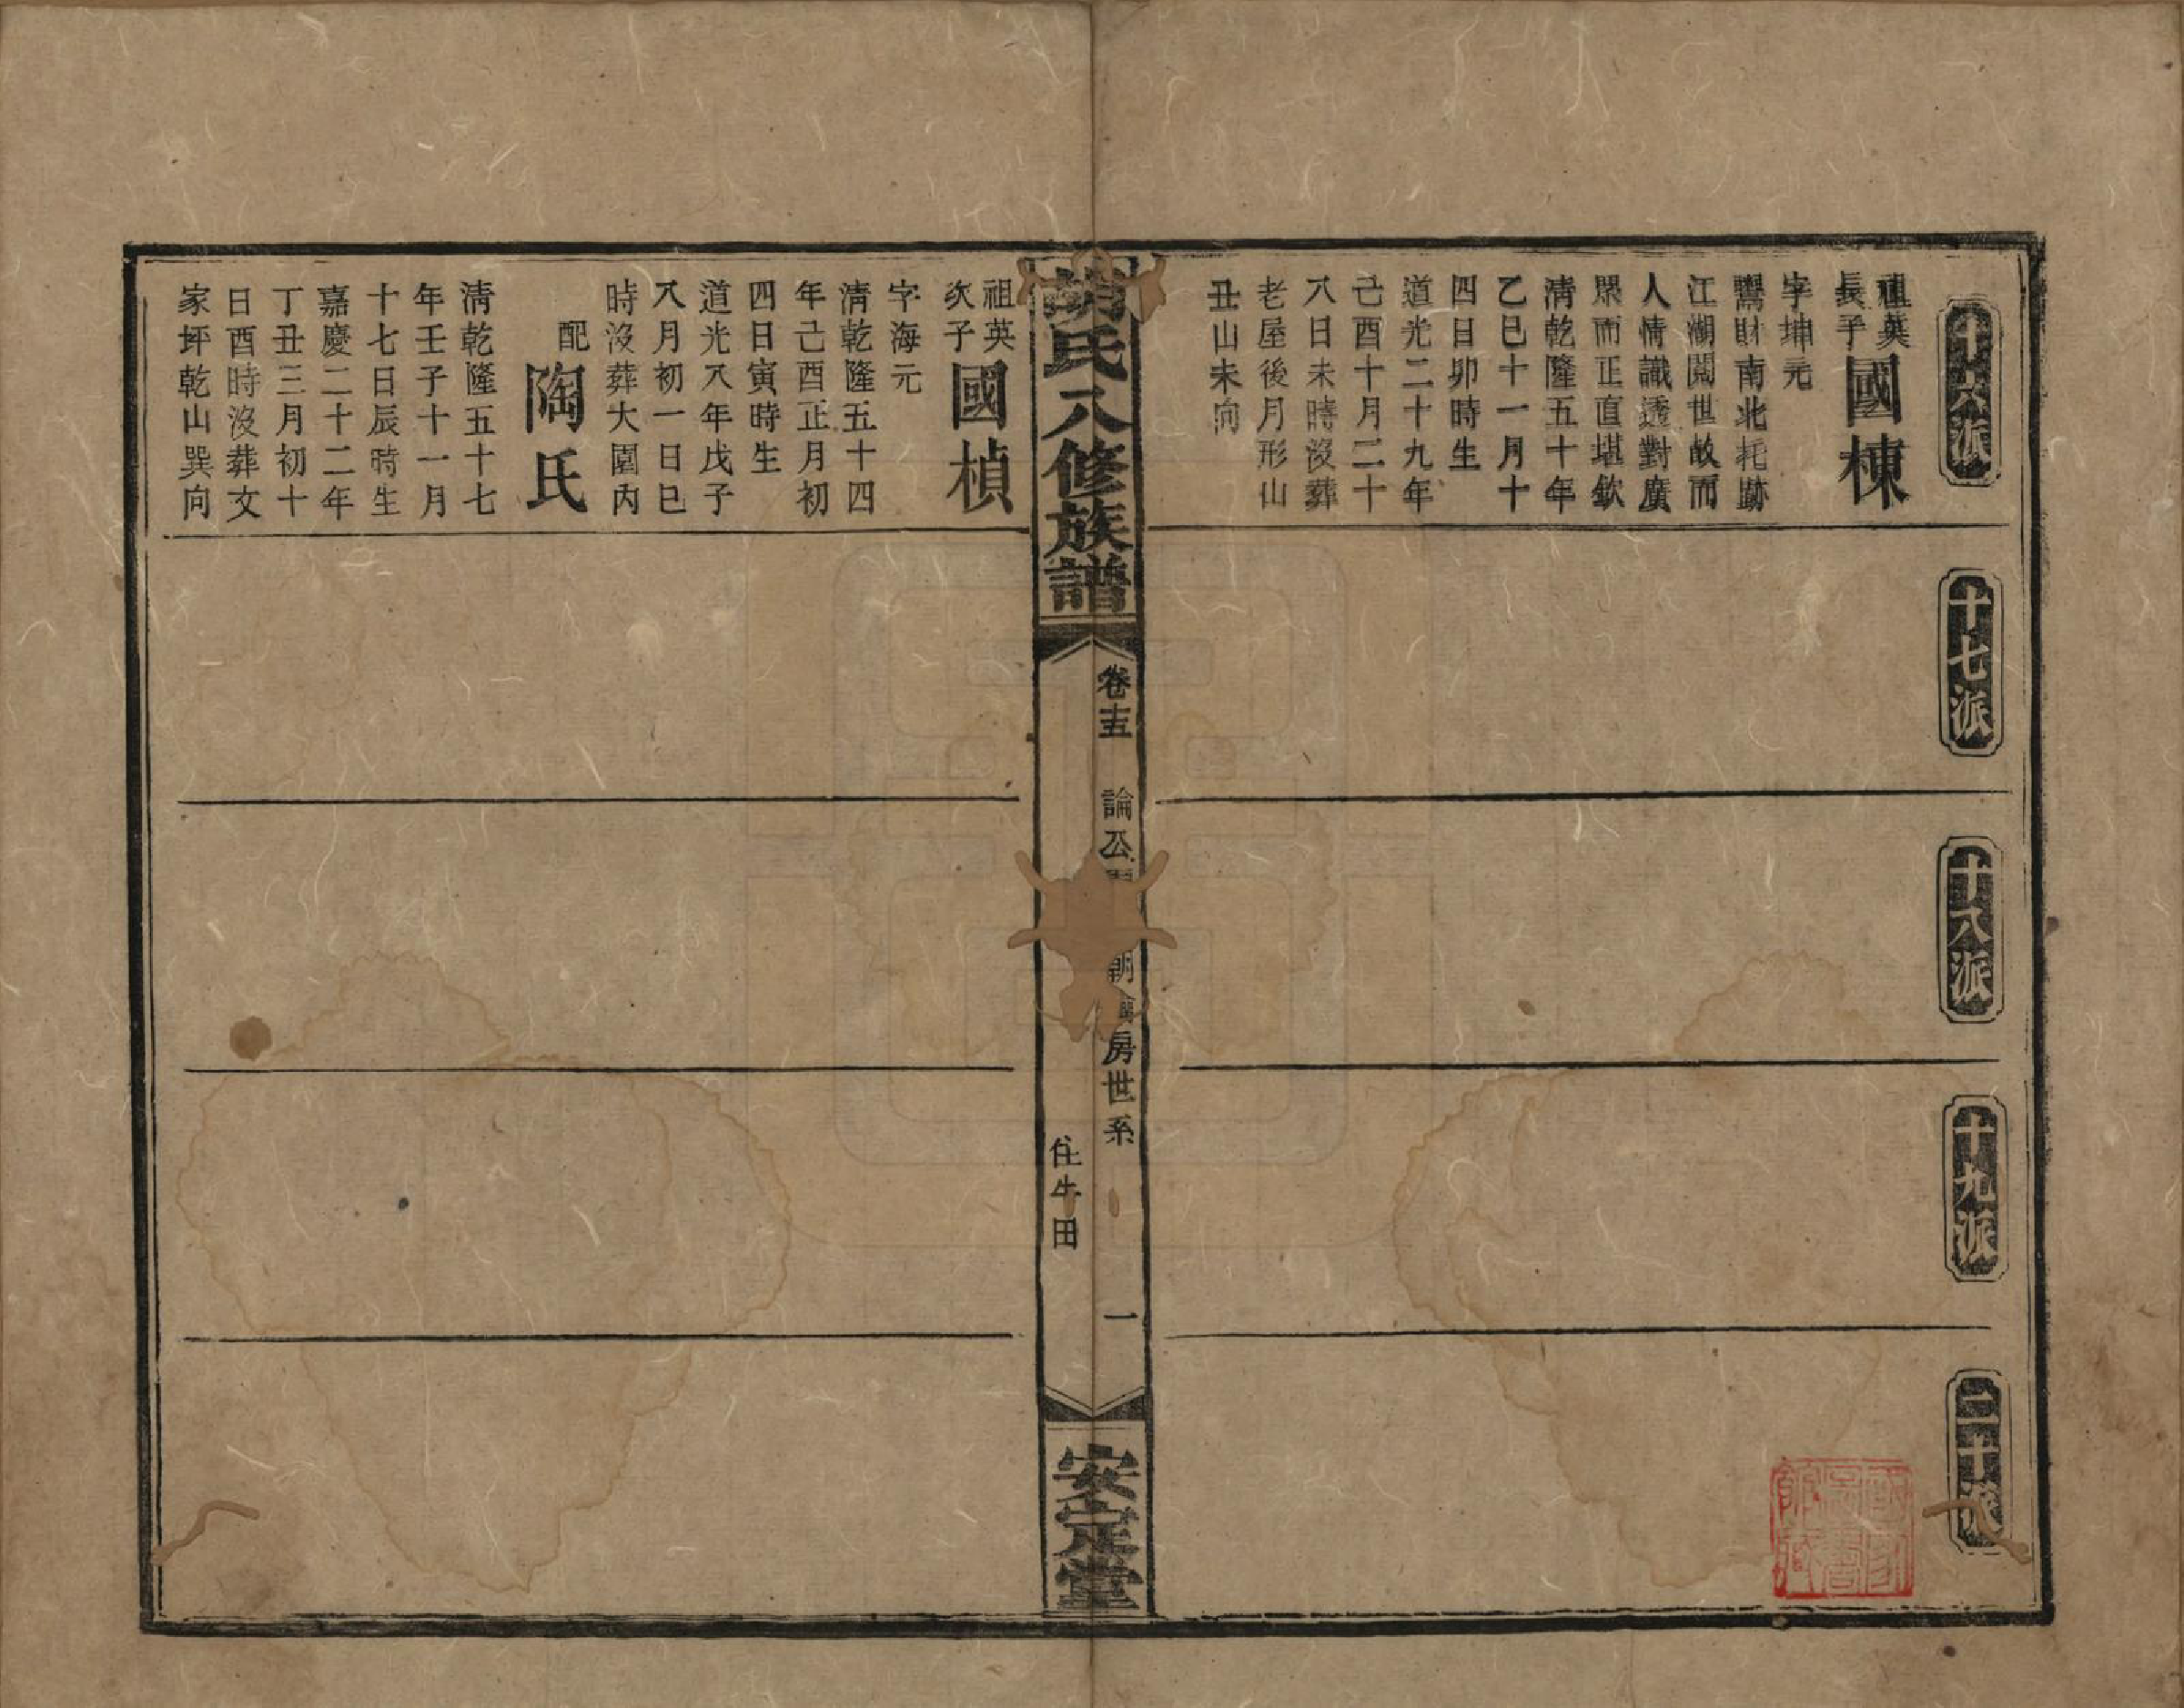 十六派
十七派
十八派
十九派
二十派
祖英
長子
國棟
字坤元
鬻財南北耗跡
江湖閱世故而
人情識透對廣
眾而正直堪欽
清乾隆五十年
乙巳十一月十
四日卯時生
道光二十九年
己酉十月二十
八日未時沒葬
老屋後月形山
丑山未向
胡氏八修族譜
卷十五
論公
朝
房世系
一
住牛田
安定堂
祖英
次子
國楨
字海元
清乾隆五十四
年己酉正月初
四日寅時生
道光八年戊子
八月初一日巳
時沒葬大園內
配
陶氏
清乾隆五十七
年壬子十一月
十七日辰時生
嘉慶二十二年
丁丑三月初十
日酉時沒葬文
家坪乾山巽向